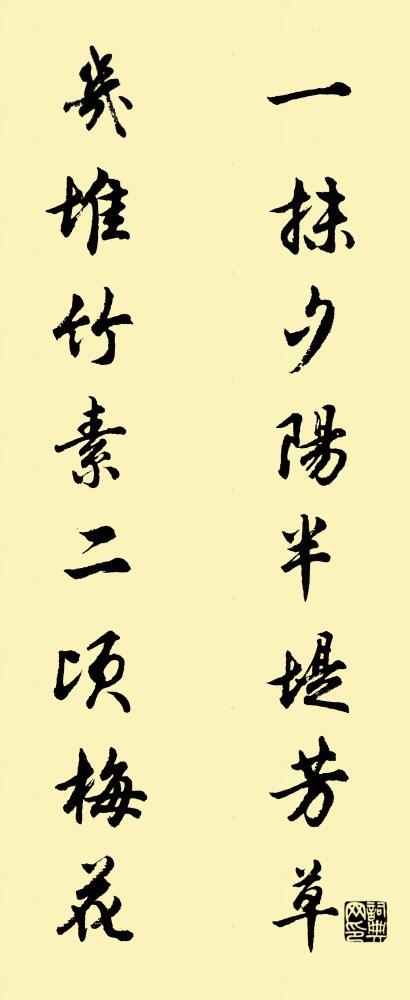 一抹夕陽半堤芳草
幾堆竹素二頃梅花
詞典网印